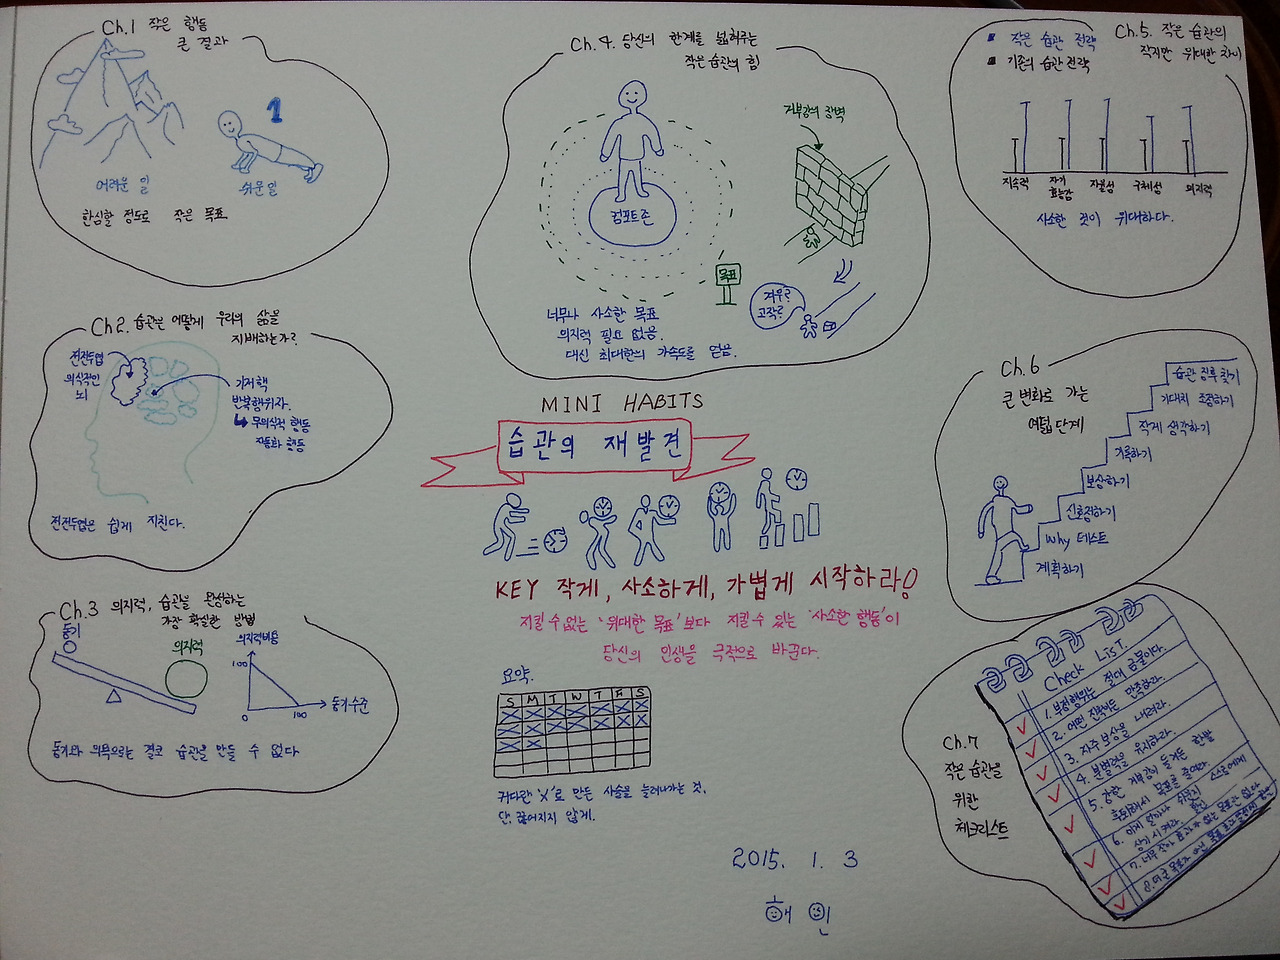 Ch.1 작은 행동
큰 결과
1
어려운 일
쉬운일
한심할 정도로 작은 목표
Ch2. 습관은 어떻게 우리의 삶을
지배하는가?
전전두엽
의식적인
뇌
기저핵
반복행위자.
무의식적 행동
자동화 행동
전전두엽은 쉽게 지친다.
Ch.3 의지력, 습관을 완성하는
가장 확실한 방법
동기
의지력
의지력비용
100
0
100
동기수준
동기와 의욕으로는 결코 습관을 만들 수 없다
Ch.4. 당신의 한계를 넓혀주는
작은습관의 힘
컴포트존
거부감의 장벽
목표
겨우?
고작?
너무나 사소한 목표
의지력 필요 없음.
대신 최대한의 가속도를 얻음.
MINI HABITS
습관의 재발견
KEY 작게, 사소하게, 가볍게 시작하라!
지킬 수 없는 '위대한 목표'보다 지킬 수 있는 '사소한 행동'이
당신의 인생을 극적으로 바꾼다.
요약.
S M T W T F S
커다란 'X'로 만든 사슬을 늘려나가는 것.
단, 끊어지지 않게.
2015. 1. 3
해인
Ch.5. 작은 습관의
작지만 위대한 차이
작은 습관 전략
기존의 습관 전략
지속력
자기
효능감
자율성
구체성
의지력
사소한 것이 위대하다.
Ch.6
큰 변화로 가는
여덟 단계
습관 징후 찾기
기대치 조절하기
작게 생각하기
기록하기
보상하기
신호정하기
Why 테스트
계획하기
Ch.7
작은 습관을
위한
체크리스트
Check List.
1. 부정행위는 절대 금물이다.
2. 어떤 진보에든 만족하라.
3. 자주 보상을 내려라.
4. 분별력을 유지하라.
5. 강한 거부감이 들거든 한발
후퇴해서 목표를 줄여라.
6. 이게 얼마나 쉬운지 스스로에게
상기시켜라.
7. 너무 작아 효과가 없는 목표란 없다
8. 더 큰 목표가